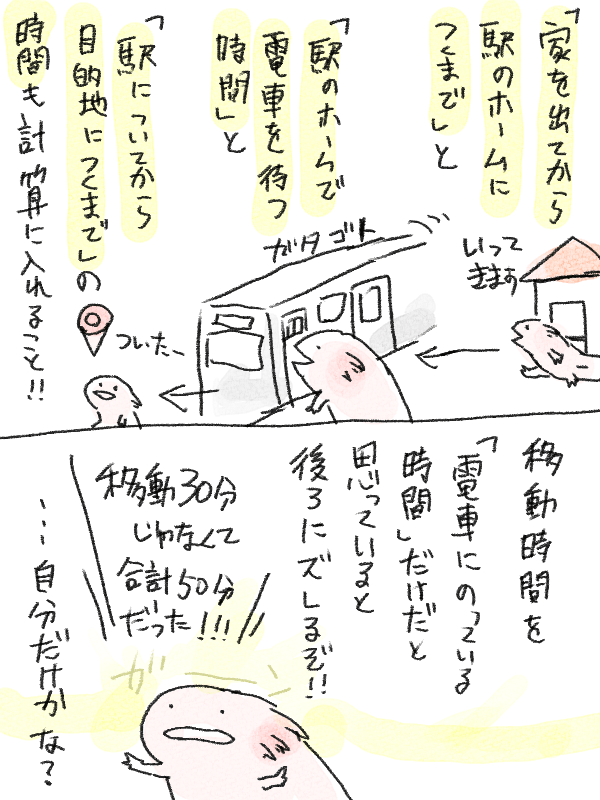 「家を出てから
駅のホームに
つくまで」と
「駅のホームで
電車を待つ
時間」と
「駅についてから
目的地につくまで」の
時間も計算に入れること!!
いって
きまあ
ガタゴト
ついたー
移動時間を
「電車にのっている
時間」だけだと
思っていると
後ろにズレるぞ!!
移動30分
じゃなくて
合計50分
だった!!!
ガーン
…自分だけかな?